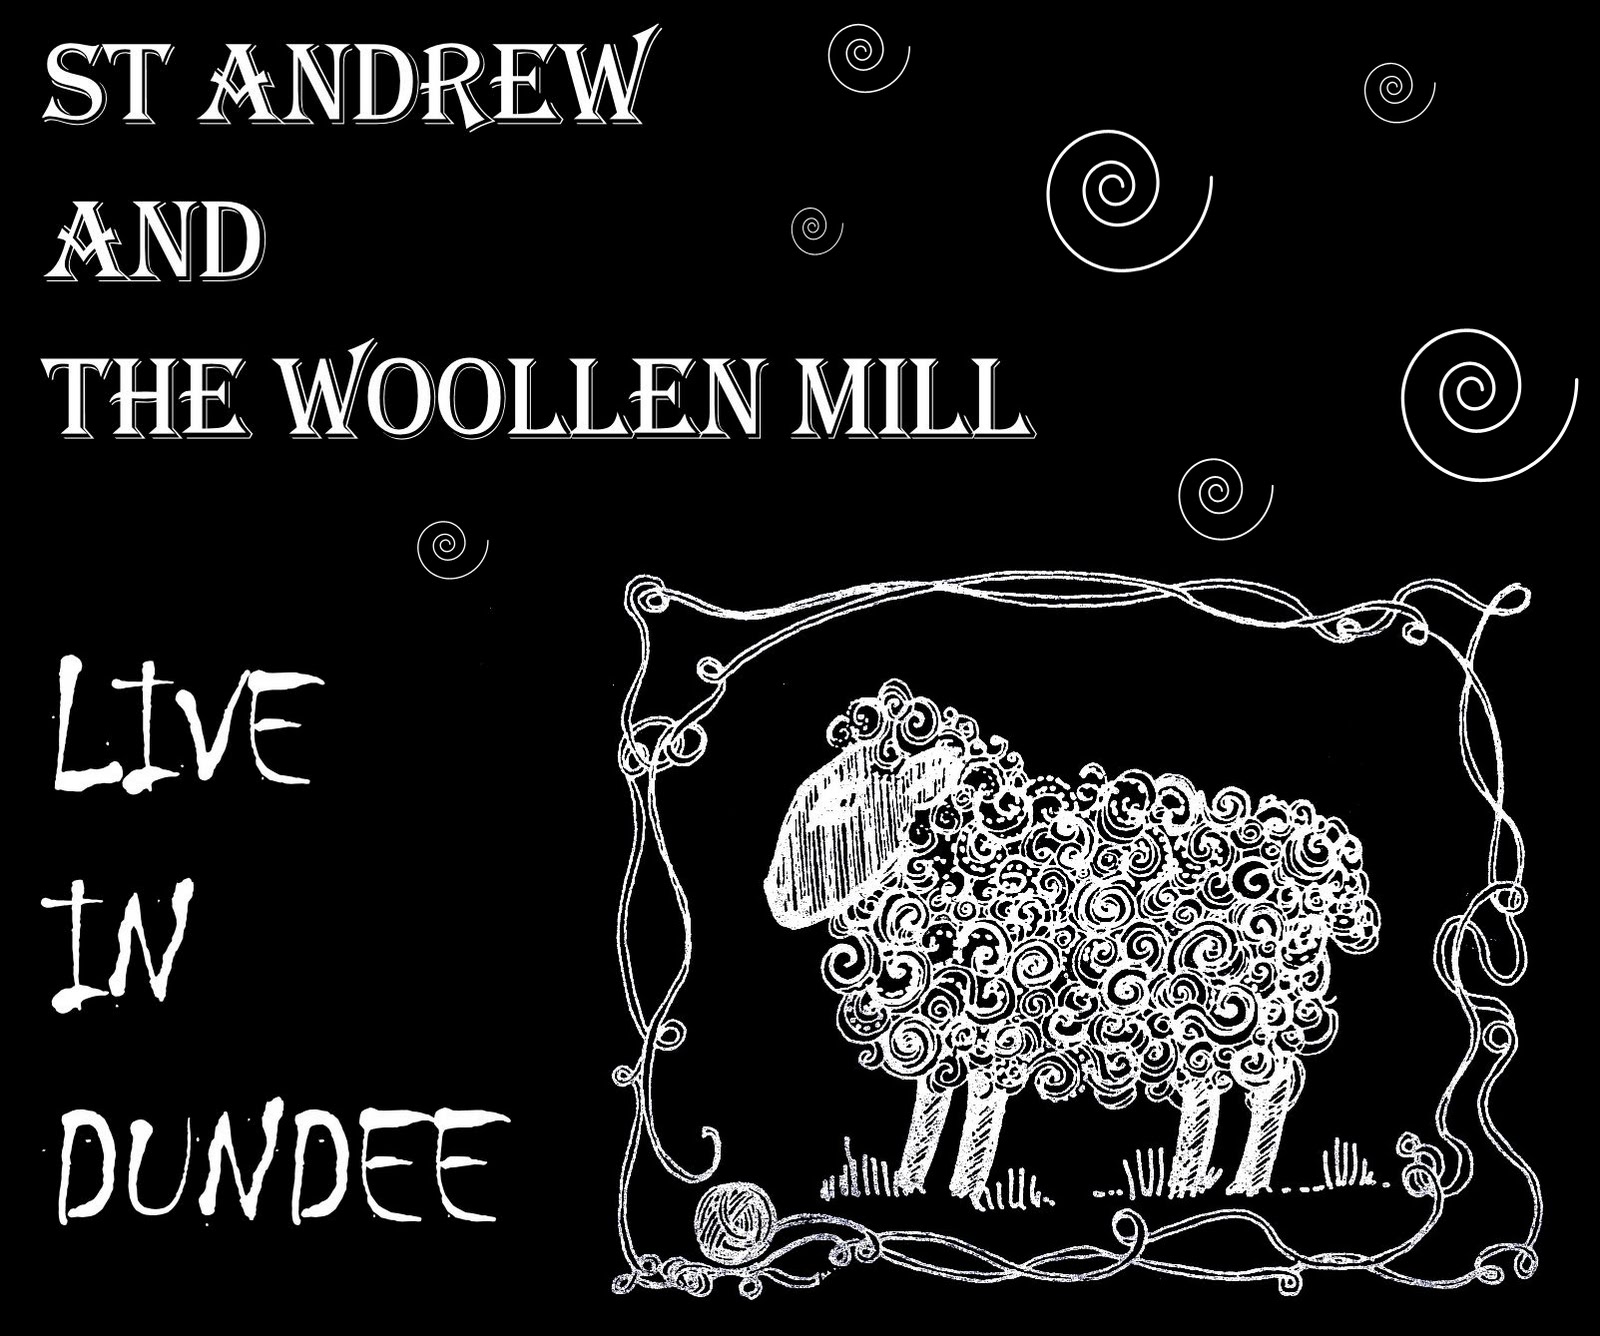 ST ANDREW
AND
THE WOOLLEN MILL
LIVE
IN
DUNDEE